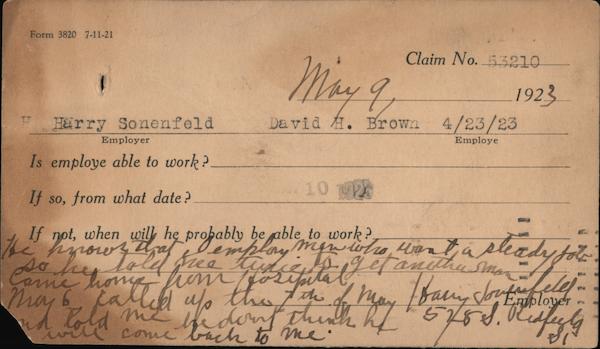 Form 3820 7-11-21
Claim No. 53210
May 9, 1923
H Harry Sonenfeld David H. Brown 4/23/23
Employer Employe
Is employe able to work?
If so, from what date?
10
If not, when will he probably be able to work?
He knows that I employ men who want a steady job
so he told me twice to get another man
came home from hospital
May 6 called up the 7th of May Harry Sonenfeld
Employer
and told me he dont think he 578 S.
will come back to me. St